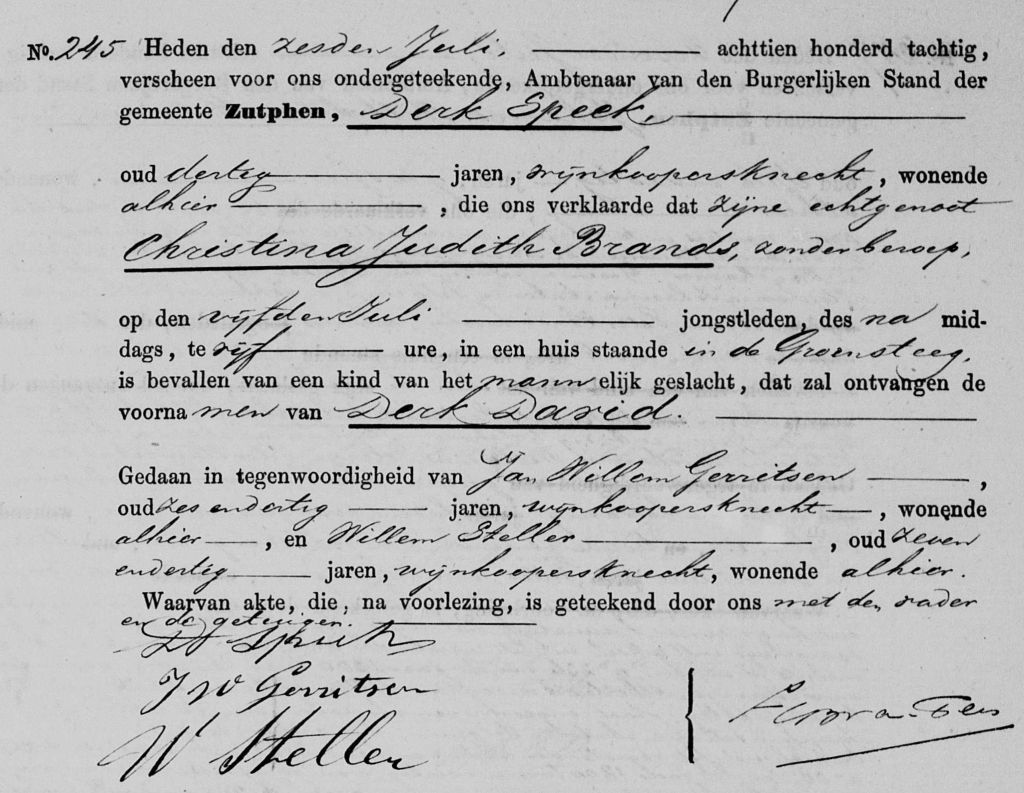 No. 245 Heden den zesden Juli, achttien honderd tachtig,
verscheen voor ons ondergeteekende, Ambtenaar van den Burgerlijken Stand der
gemeente Zutphen, Derk Speek,
oud dertig jaren, wijnkoopersknecht, wonende
alhier, die ons verklaarde dat zijne echtgenoot
Christina Judith Brands, zonder beroep,
op den vijfden Juli jongstleden, des na mid-
dags, te vijf ure, in een huis staande in de Groensteeg,
is bevallen van een kind van het mannelijk geslacht, dat zal ontvangen de
voornamen van Derk David.
Gedaan in tegenwoordigheid van Jan Willem Gerritsen,
oud zes en dertig jaren, wijnkoopersknecht, wonende
alhier, en Willem Steller, oud zeven
en dertig jaren, wijnkoopersknecht, wonende alhier.
Waarvan akte, die, na voorlezing, is geteekend door ons met den vader
en de getuigen.
J W Gerritsen
W Steller